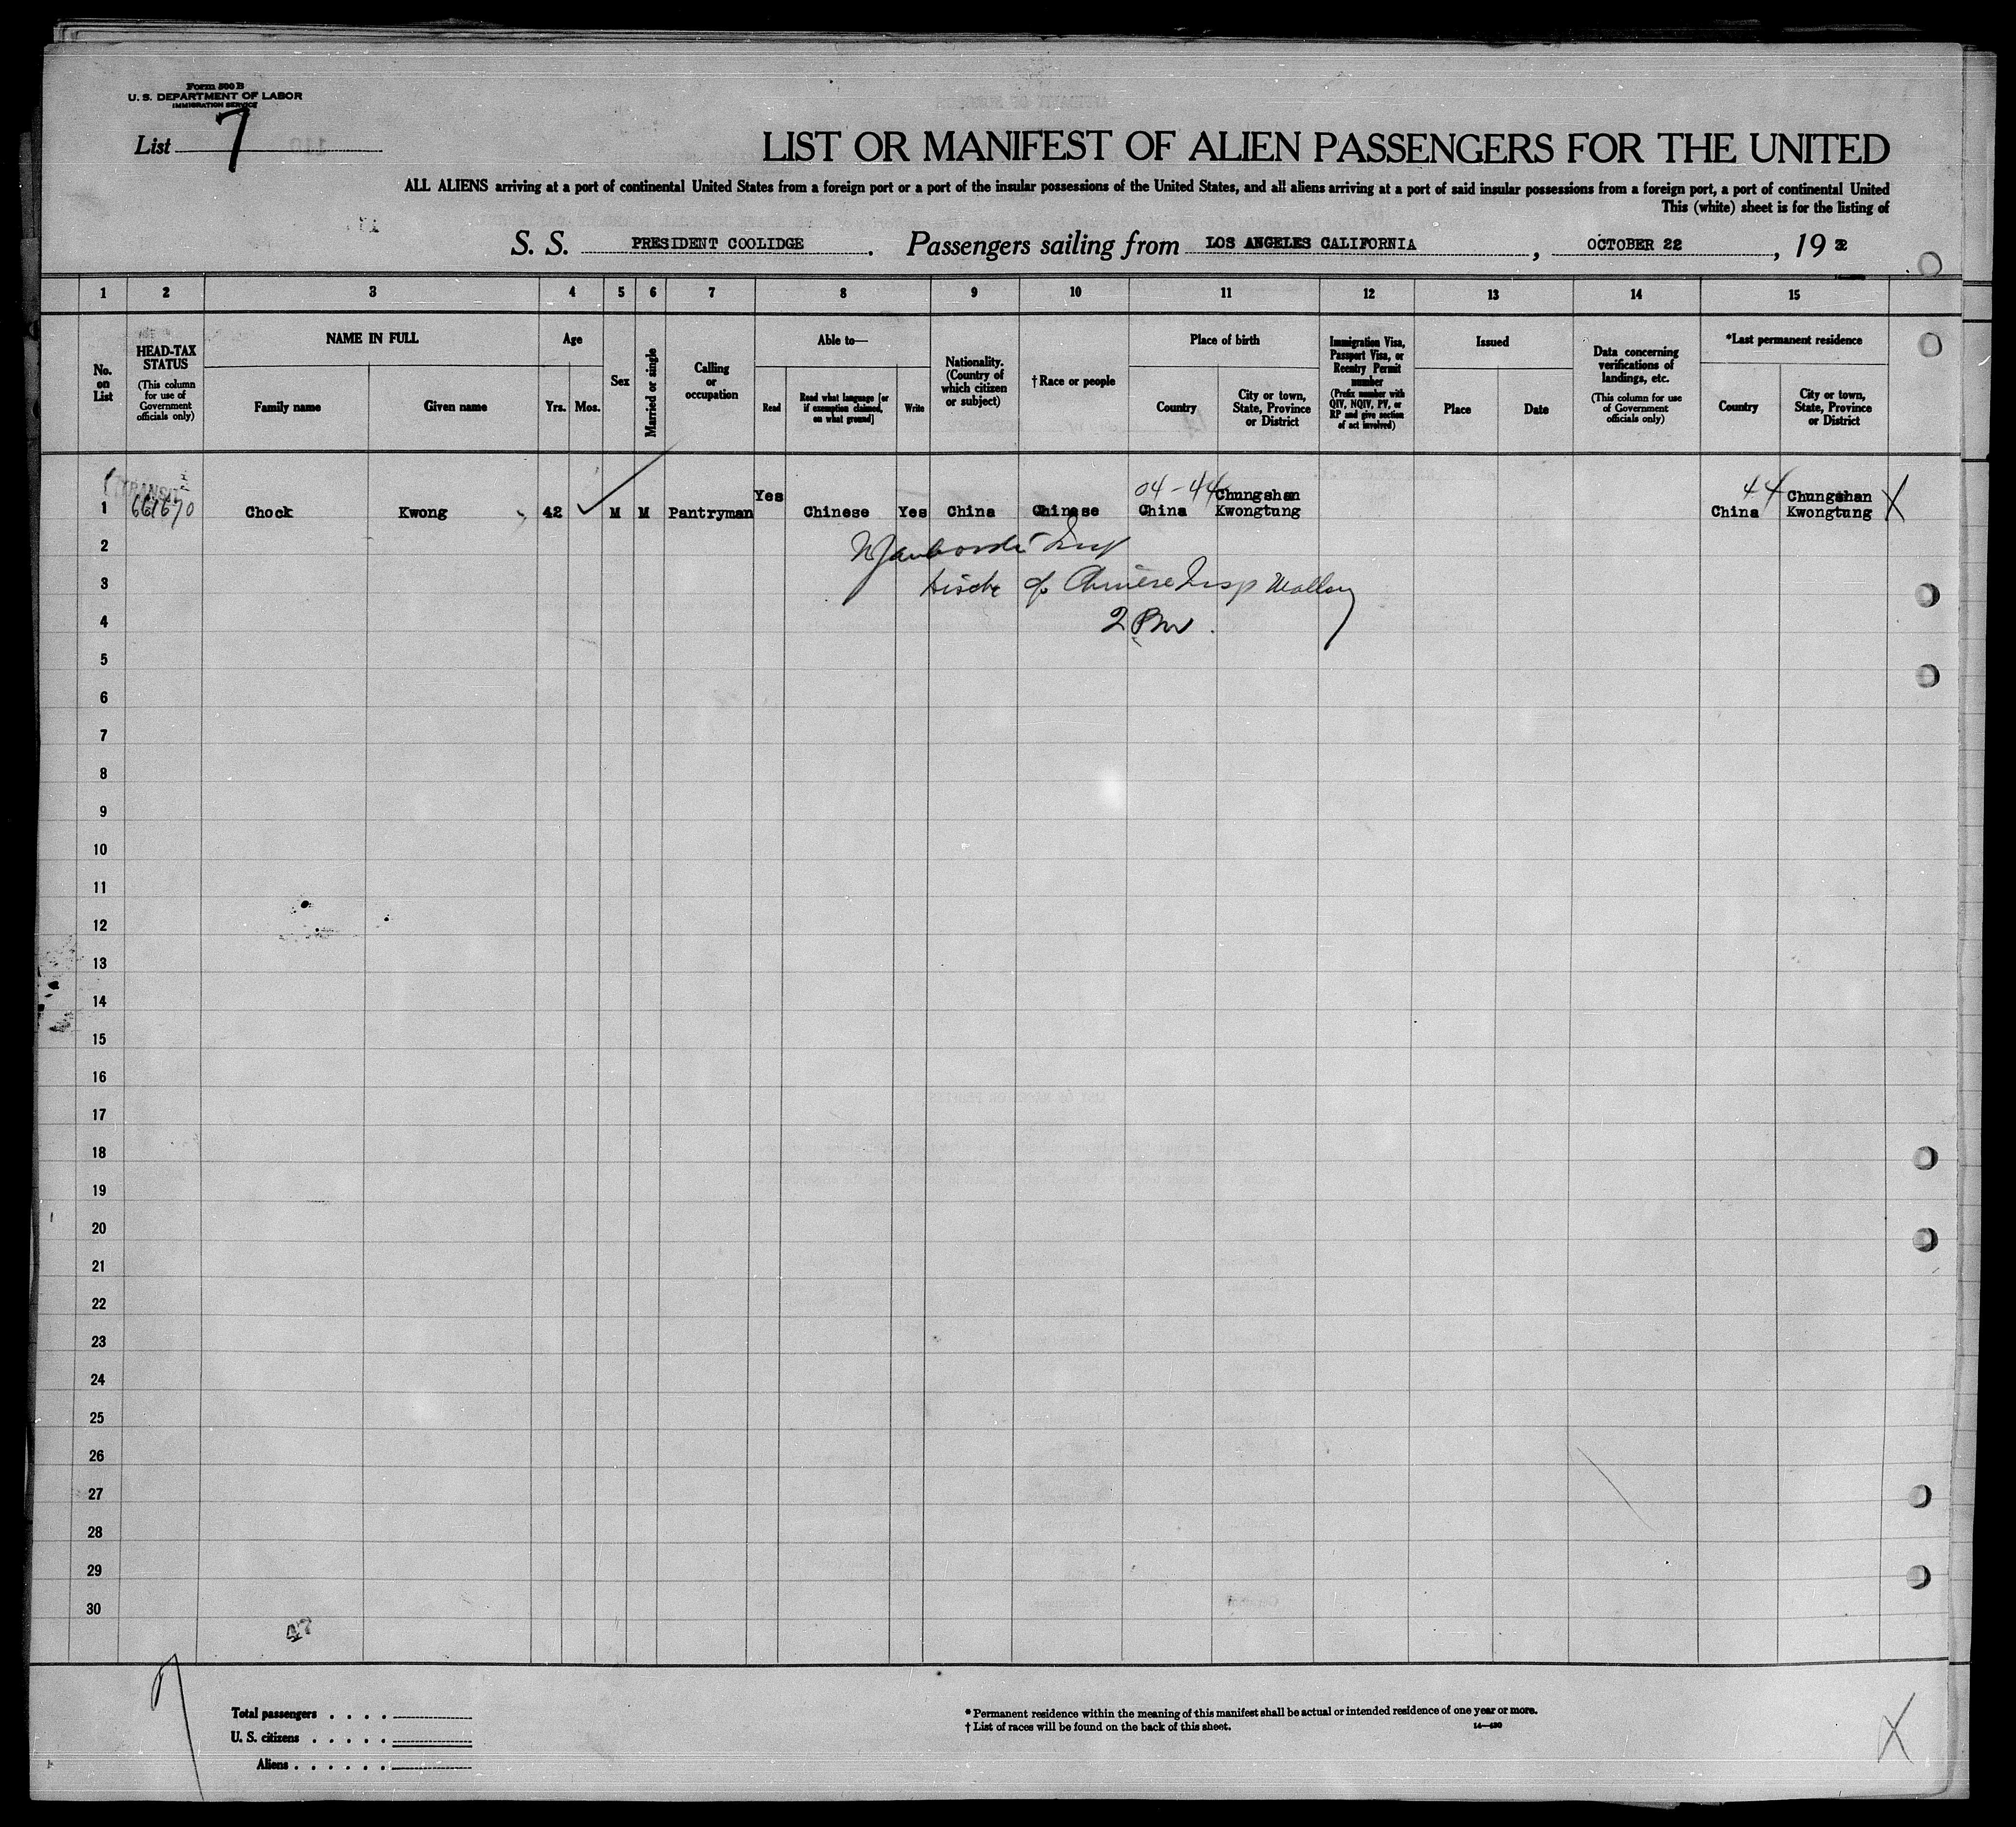 Form 500 B
U. S. DEPARTMENT OF LABOR
IMMIGRATION SERVICE
List 7
LIST OR MANIFEST OF ALIEN PASSENGERS FOR THE UNITED
ALL ALIENS arriving at a port of continental United States from a foreign port or a port of the insular possessions of the United States, and all aliens arriving at a port of said insular possessions from a foreign port, a port of continental United
This (white) sheet is for the listing of
S. S. PRESIDENT COOLIDGE. Passengers sailing from LOS ANGELES CALIFORNIA, OCTOBER 22, 19 32
1 2 3 4 5 6 7 8 9 10 11 12 13 14 15
No. on List
HEAD-TAX STATUS (This column for use of Government officials only)
NAME IN FULL
Family name
Given name
Age
Yrs. Mos.
Sex
Married or single
Calling or occupation
Able to—
Read
Read what language [or if exemption claimed, on what ground]
Write
Nationality. (Country of which citizen or subject)
† Race or people
Place of birth
Country
City or town, State, Province or District
Immigration Visa, Passport Visa, or Reentry Permit number (Prefix number with QIV, NQIV, PV, or RP and give section of act involved)
Issued
Place
Date
Data concerning verifications of landings, etc. (This column for use of Government officials only)
*Last permanent residence
Country
City or town, State, Province or District
TRANSIT
04-44 Chungshan 44 Chungshan X
1 661670 Chock Kwong 42 M M Pantryman Yes Chinese Yes China Chinese China Kwongtung China Kwongtung
2
3 Chinese Insp
4 2 Pm
5
6
7
8
9
10
11
12
13
14
15
16
17
18
19
20
21
22
23
24
25
26
27
28
29
30
47
Total passengers . . . .
U. S. citizens . . . . .
Aliens . . . . . .
* Permanent residence within the meaning of this manifest shall be actual or intended residence of one year or more.
† List of races will be found on the back of this sheet.
14—430
X